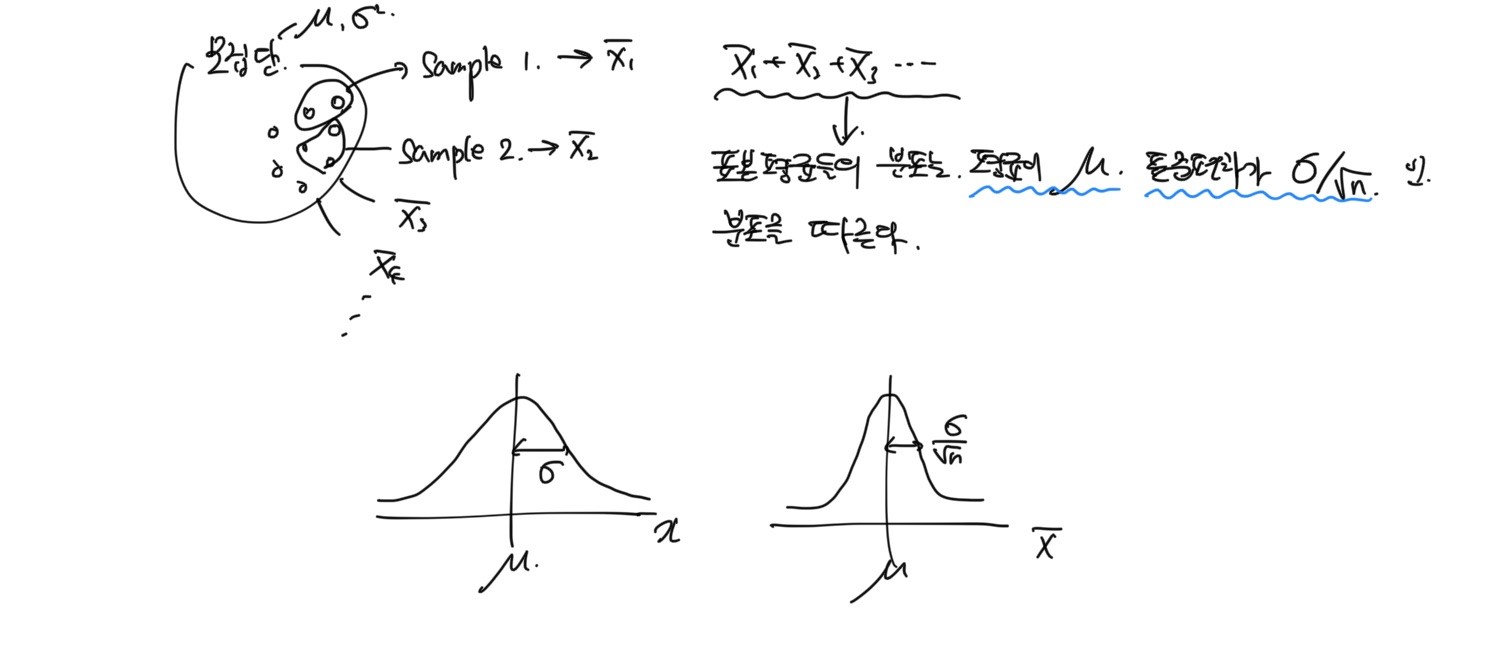 μ, σ².
모집단.
Sample 1. → X̄₁
Sample 2. → X̄₂
X̄₃
X̄₁ + X̄₂ + X̄₃ ---
표본평균들의 분포는. 평균이 μ. 표준편차가 σ/√n. 인.
분포을 따른다.
σ
x
μ.
σ/√n
X̄
μ